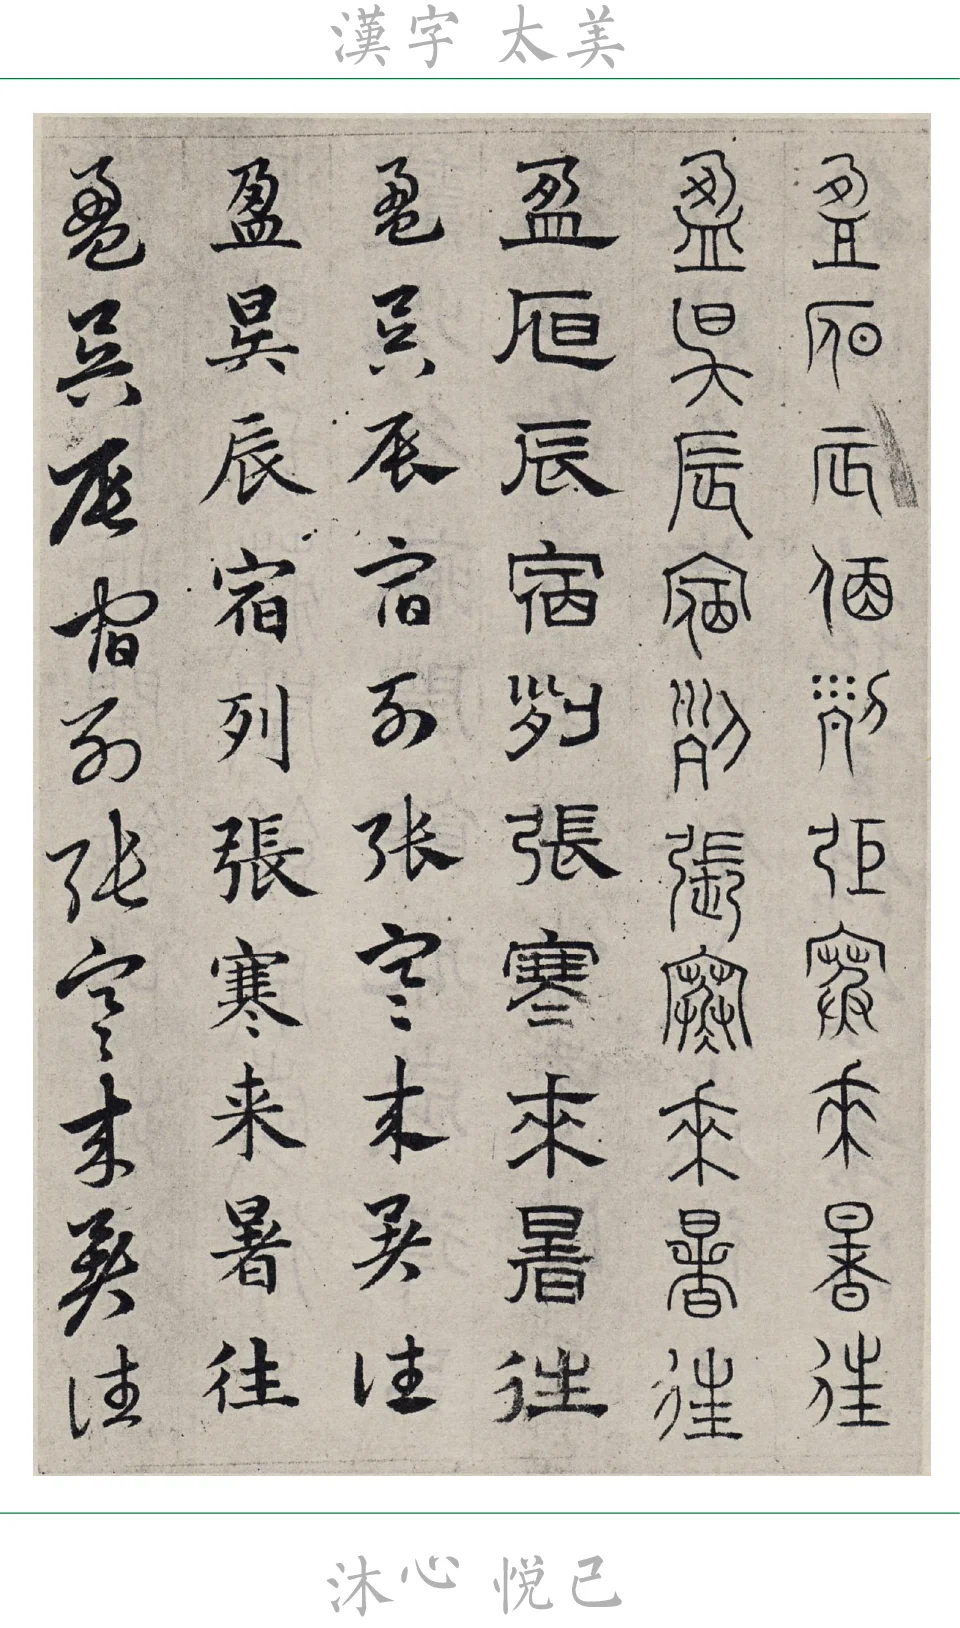 漢字 太美
盈昃辰宿列張寒來暑往
盈昃辰宿列張寒來暑往
盈昃辰宿列張寒來暑往
盈昃辰宿列張寒来暑往
盈昃辰宿列張寒来暑往
盈昃辰宿列張寒来暑往
沐心 悦己